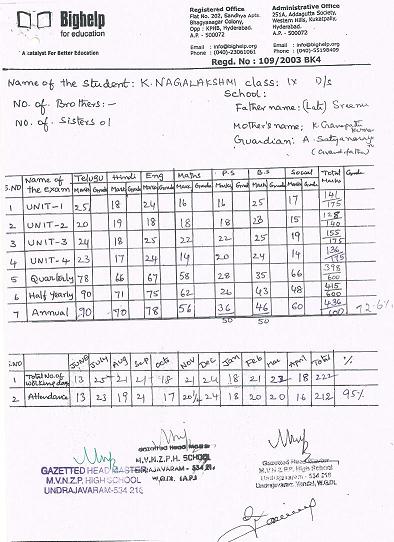 Bighelp
for education
"A catalyst For Better Education
Registered Office
Flat No. 202, Sandhya Apts.
Bhagyanagar Colony,
Opp : KPHB, Hyderabad.
A.P. - 500072
Email : info@bighelp.org
Phone : (040)-23061061
Administrative Office
251A, Addagutta Society,
Western Hills, Kukatpally,
Hyderabad.
A.P. - 500072
Email : info@bighelp.org
Phone : (040)-55198409
Regd. No : 109/2003 BK4
Name of the Student: K. NAGALAKSHMI class: IX D/s
School:
NO. of Brothers:-
Father name: (Late) Sreenu
NO. of Sisters 01
Mother's name: K.
Guardian: A.
(Grand father)
S.NO Name of the Exam Telugu Hindi Eng Maths P.S B.S Social Total Marks Grade
Mark Grade Mark Grade Mark Grade Mark Grade Mark Grade Mark Grade Mark Grade
1 UNIT-1 25 18 24 16 16 25 17 141/175
2 UNIT-2 20 19 18 18 18 28 15 128/140
3 UNIT-3 24 18 25 22 22 25 19 155/175
4 UNIT-4 23 17 24 14 20 24 14 136/175
5 Quarterly 78 66 67 58 28 35 66 398/600
6 Half Yearly 90 71 75 62 26 43 48 415/600
7 Annual 90 70 78 56 36/50 46/50 60 436/600 72.6%
S.NO JUNE July Aug Sep Octs Nov Dec Jan Feb Mar April Total %
1 Total No. of Working days 13 25 21 21 18 21 24 18 21 22 18 222
2 Attendance 13 23 19 21 17 20 24 18 20 20 16 212 95%
GAZETTED HEAD MASTER
M.V.N.Z.P. HIGH SCHOOL
UNDRAJAVARAM-534 216
Gazetted Head Master
M.V.N.Z.P.H. SCHOOL
UNDRAJAVARAM - 534 216
W.G.Dt. (A.P.)
Gazetted Head Master
M.V.N.Z.P.P. High School
Undrajavaram - 534 216
Undrajavaram Mandal, W.G.Dt.